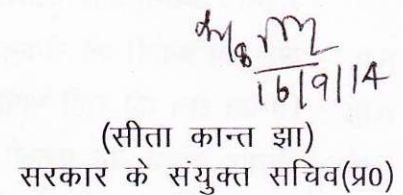 16/9/14
(सीता कान्त झा)
सरकार के संयुक्त सचिव(प्र0)